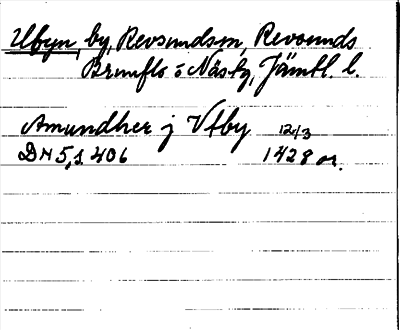 Utbyn, by, Revsundsm, Revsunds
Brunflo o Näs tg, Jämtl. l.
Amundher j Vtby 12/3
DN 5, s. 406 1428 or.